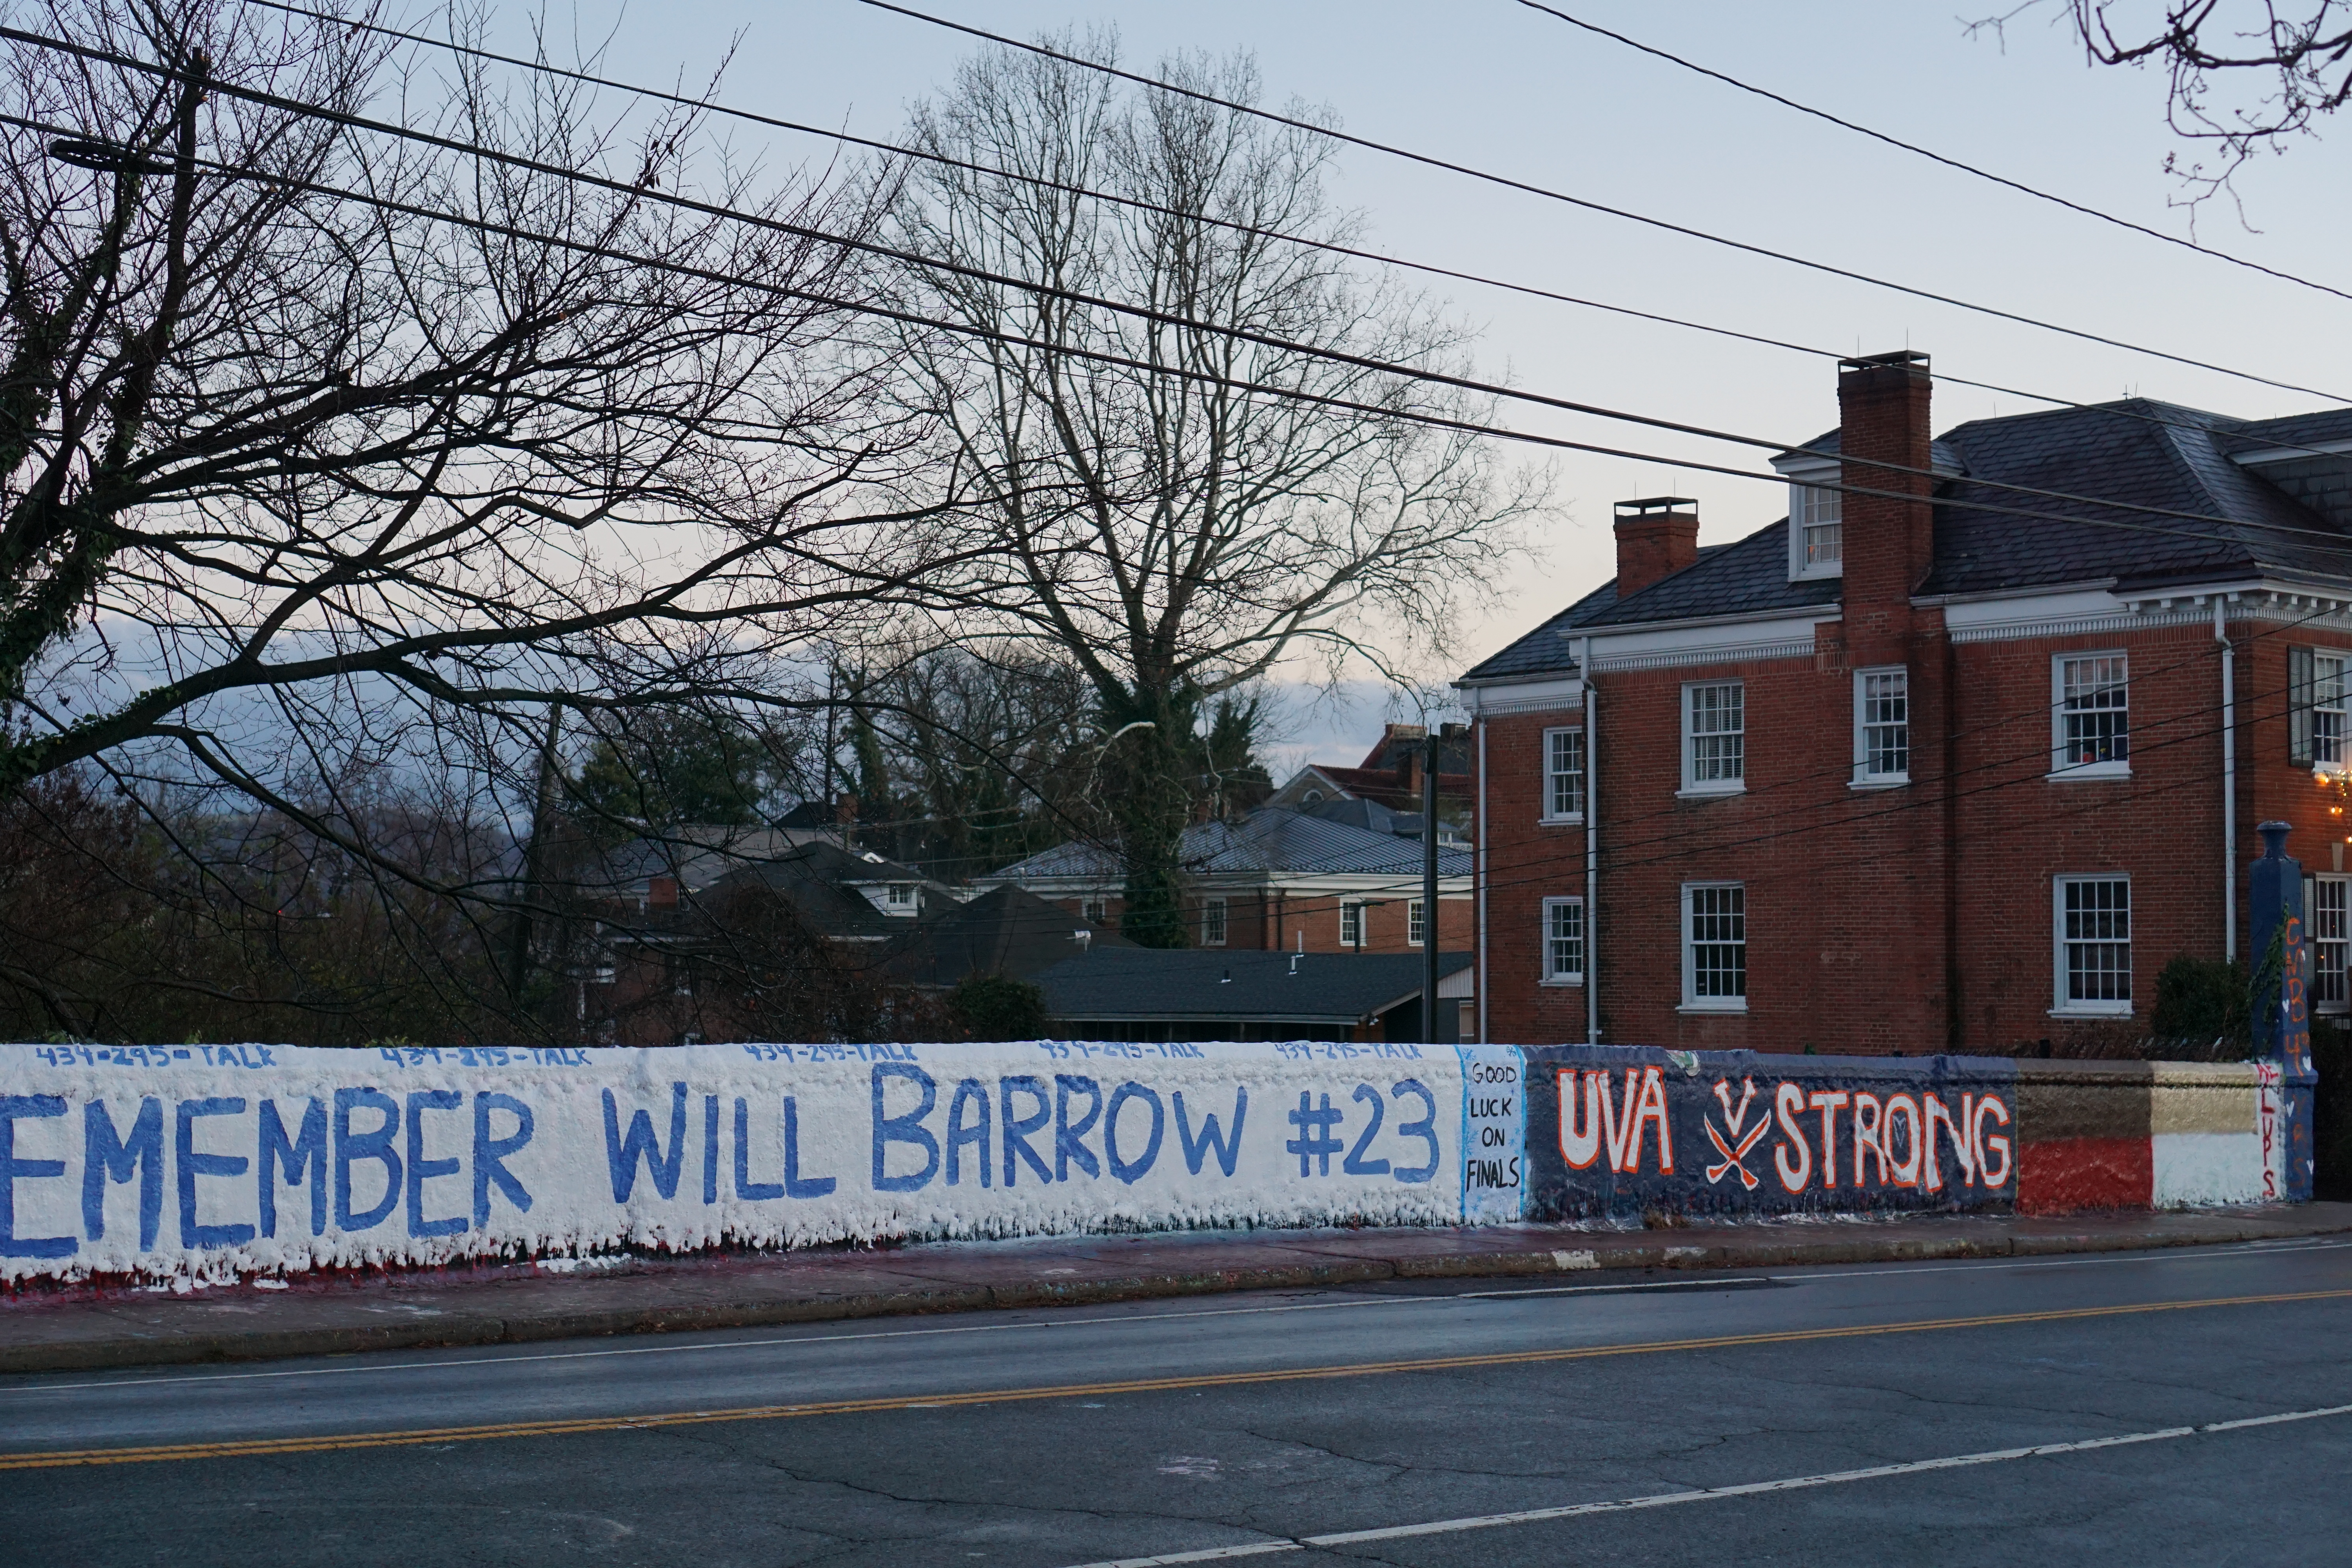 434-295-TALK 434-295-TALK 434-295-TALK 434-295-TALK 434-295-TALK
EMEMBER WILL BARROW #23
GOOD
LUCK
ON
FINALS
UVA V STRONG